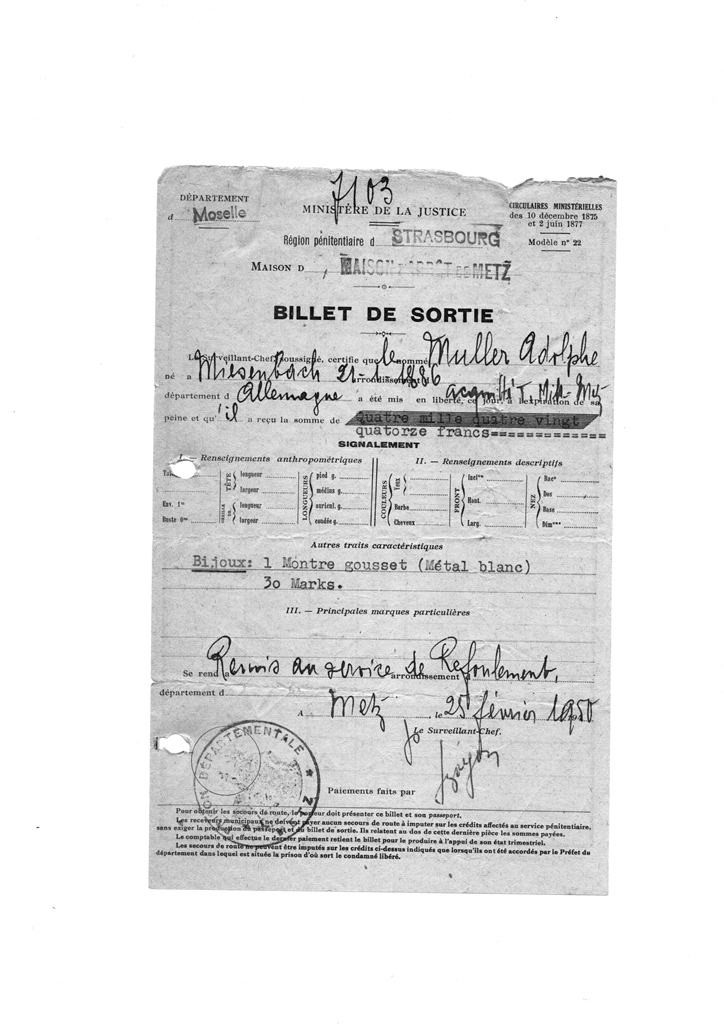 7103
DÉPARTEMENT
d Moselle
MINISTÈRE DE LA JUSTICE
CIRCULAIRES MINISTÉRIELLES
des 10 décembre 1875
et 2 juin 1877
Modèle n° 22
Région pénitentiaire d STRASBOURG
MAISON D MAISON D'ARRÊT DE METZ
BILLET DE SORTIE
Le Surveillant-Chef soussigné, certifie que le nommé Muller Adolphe
né a Miesenbach 21-1-1886 arrondissement d acquitté T. Mil. Metz
département d Allemagne a été mis en liberté, ce jour, à l'expiration de sa
peine et qu'il a reçu la somme de quatre mille quatre vingt
quatorze francs==============
SIGNALEMENT
I. — Renseignements anthropométriques
II. — Renseignements descriptifs
TÊTE longueur
largeur
longueur
largeur
Env. 1m
Buste 0m
LONGUEURS pied g.
médius g.
auricul. g.
coudée g.
COULEURS Yeux
Barbe
Cheveux
FRONT Incl°n
Haut.
Larg.
NEZ Rac°
Dos
Base
Dim°n
Autres traits caractéristiques
Bijoux: 1 Montre gousset (Métal blanc)
30 Marks.
III. — Principales marques particulières
Se rend à Remis au service de Refoulement,
arrondissement
département d
A Metz, le 25 février 1950
Le Surveillant-Chef.
DÉPARTEMENTALE
Paiements faits par
Pour obtenir les secours de route, le porteur doit présenter ce billet et son passeport.
Les receveurs municipaux ne doivent payer aucun secours de route à imputer sur les crédits affectés au service pénitentiaire,
sans exiger la production du passeport et du billet de sortie. Ils relatent au dos de cette dernière pièce les sommes payées.
Le comptable qui effectue le dernier paiement retient le billet pour le produire à l'appui de son état trimestriel.
Les secours de route ne peuvent être imputés sur les crédits ci-dessus indiqués que lorsqu'ils ont été accordés par le Préfet du
département dans lequel est située la prison d'où sort le condamné libéré.